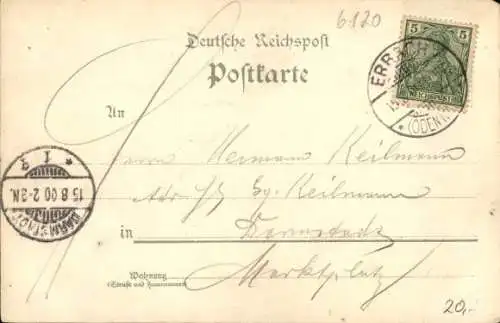 6120
Deutsche Reichspost
Postkarte
5 5
REICHSPOST
ERBACH
(ODENW.)
An
Herrn Hermann Keilmann
Adr. Gg. Keilmann
in Darmstadt
Marktplatz
Wohnung
(Straße und Hausnummer)
DARMSTADT
15 8 00 2-3N.
* 1
20,-